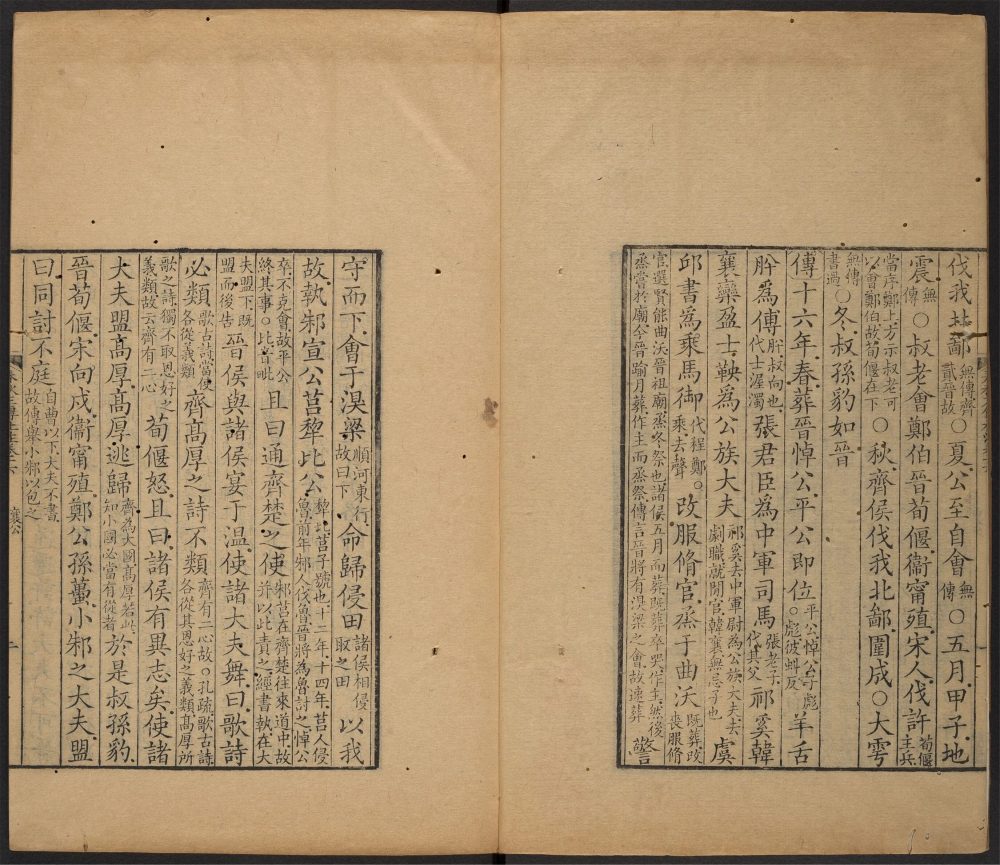 伐我北鄙無傳齊貳晉故○夏公至自會無傳○五月甲子地
震無傳○叔老會鄭伯晉荀偃衞甯殖宋人伐許荀偃主兵
當序鄭上方示叔老可以會鄭伯故荀偃在下○秋齊侯伐我北鄙圍成○大雩
無傳書過○冬叔孫豹如晉
傳十六年春葬晉悼公平公即位平公悼公子彪○彪彼蚪反羊舌
肸為傅肸叔向也代士渥濁張君臣為中軍司馬張老子代其父祁奚韓
襄欒盈士鞅為公族大夫祁奚去中軍尉為公族大夫去劇職就閒官韓襄無忌子也虞
丘書為乘馬御代程鄭○乘去聲改服脩官烝于曲沃既葬改喪服脩
官選賢能曲沃晉祖廟烝冬祭也諸侯五月而葬既葬卒哭作主然後烝嘗於廟今晉踰月葬作主而烝祭傳言晉將有湨梁之會故速葬警
守而下會于湨梁順河東行故曰下命歸侵田諸侯相侵取之田以我
故執邾宣公莒犂比公犂比莒子號也十二年十四年莒人侵魯前年邾人伐魯晉將為魯討之悼公
卒不克會故平公終其事○比音毗且曰通齊楚之使邾莒在齊楚往來道中故并以此責之經書執在大
夫盟下既盟而後告晉侯與諸侯宴于溫使諸大夫舞曰歌詩
必類歌古詩當使各從義類齊高厚之詩不類齊有二心故○孔疏歌古詩各從其恩好之義類高厚所
歌之詩獨不取恩好之義類故云齊有二心荀偃怒且曰諸侯有異志矣使諸
大夫盟高厚高厚逃歸齊為大國高厚若此知小國必當有從者於是叔孫豹
晉荀偃宋向戌衞甯殖鄭公孫蠆小邾之大夫盟
曰同討不庭自曹以下大夫不書故傳舉小邾以包之
襄公